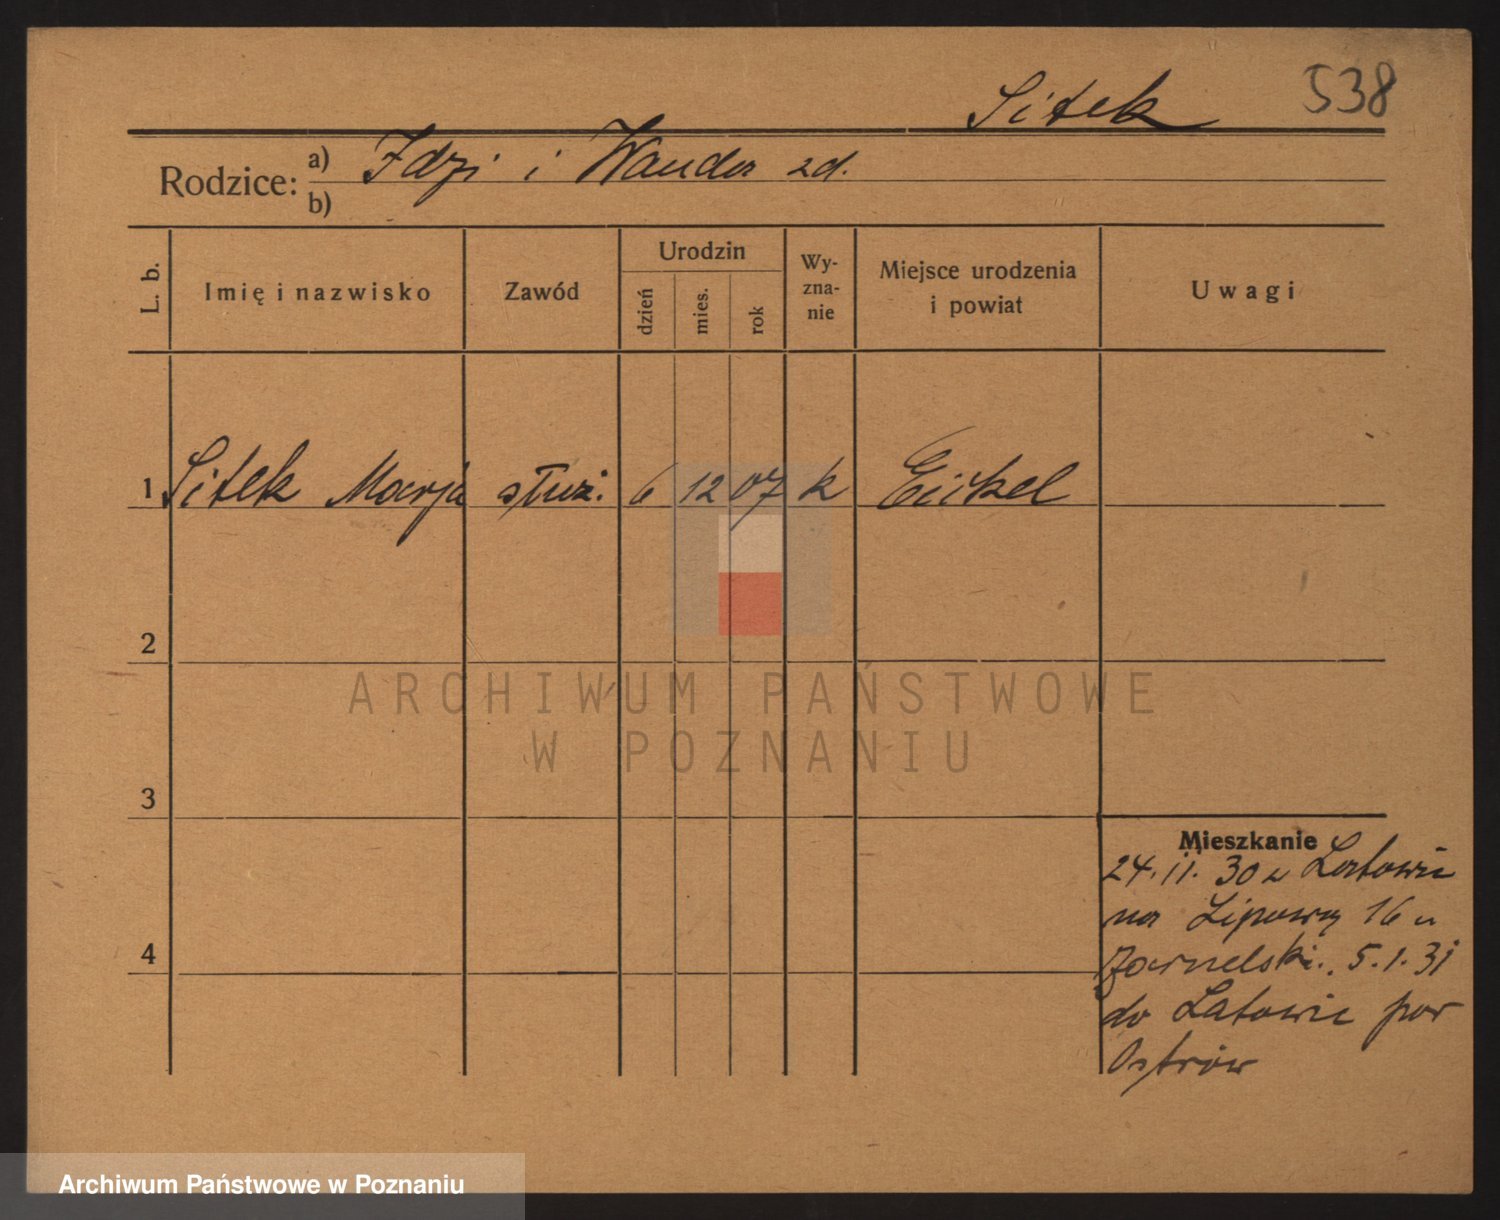 Sitek 538
Rodzice: a) Idzi i Wanda zd.
b)
L. b. Imię i nazwisko Zawód Urodzin dzień mies. rok Wy-zna-nie Miejsce urodzenia i powiat Uwagi
1 Sitek Marja służ. 6 12 07 k Eickel
2
ARCHIWUM PAŃSTWOWE
W POZNANIU
3
Mieszkanie
24.11.30 z Latowic
na Lipową 16 u
5.1.31
4
do Latowic pow
Ostrów
Archiwum Państwowe w Poznaniu